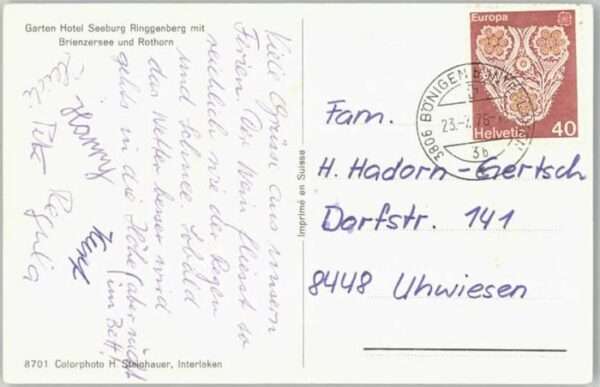 Garten Hotel Seeburg Ringgenberg mit
Brienzersee und Rothorn
Viele Grüsse aus unsern
Ferien. Der Wein fliesst so
reichlich wie der Regen
und Schnee. Sobald
das Wetter besser wird
gehts in die Höhe (aber nicht
im Bett!
Harry
Regula
Imprimé en Suisse
Europa
Helvetia 40
3806 BÖNIGEN
23.-
3b
Fam.
H. Hadorn-Gertsch
Dorfstr. 141
8448 Uhwiesen
8701 Colorphoto H. Steinhauer, Interlaken